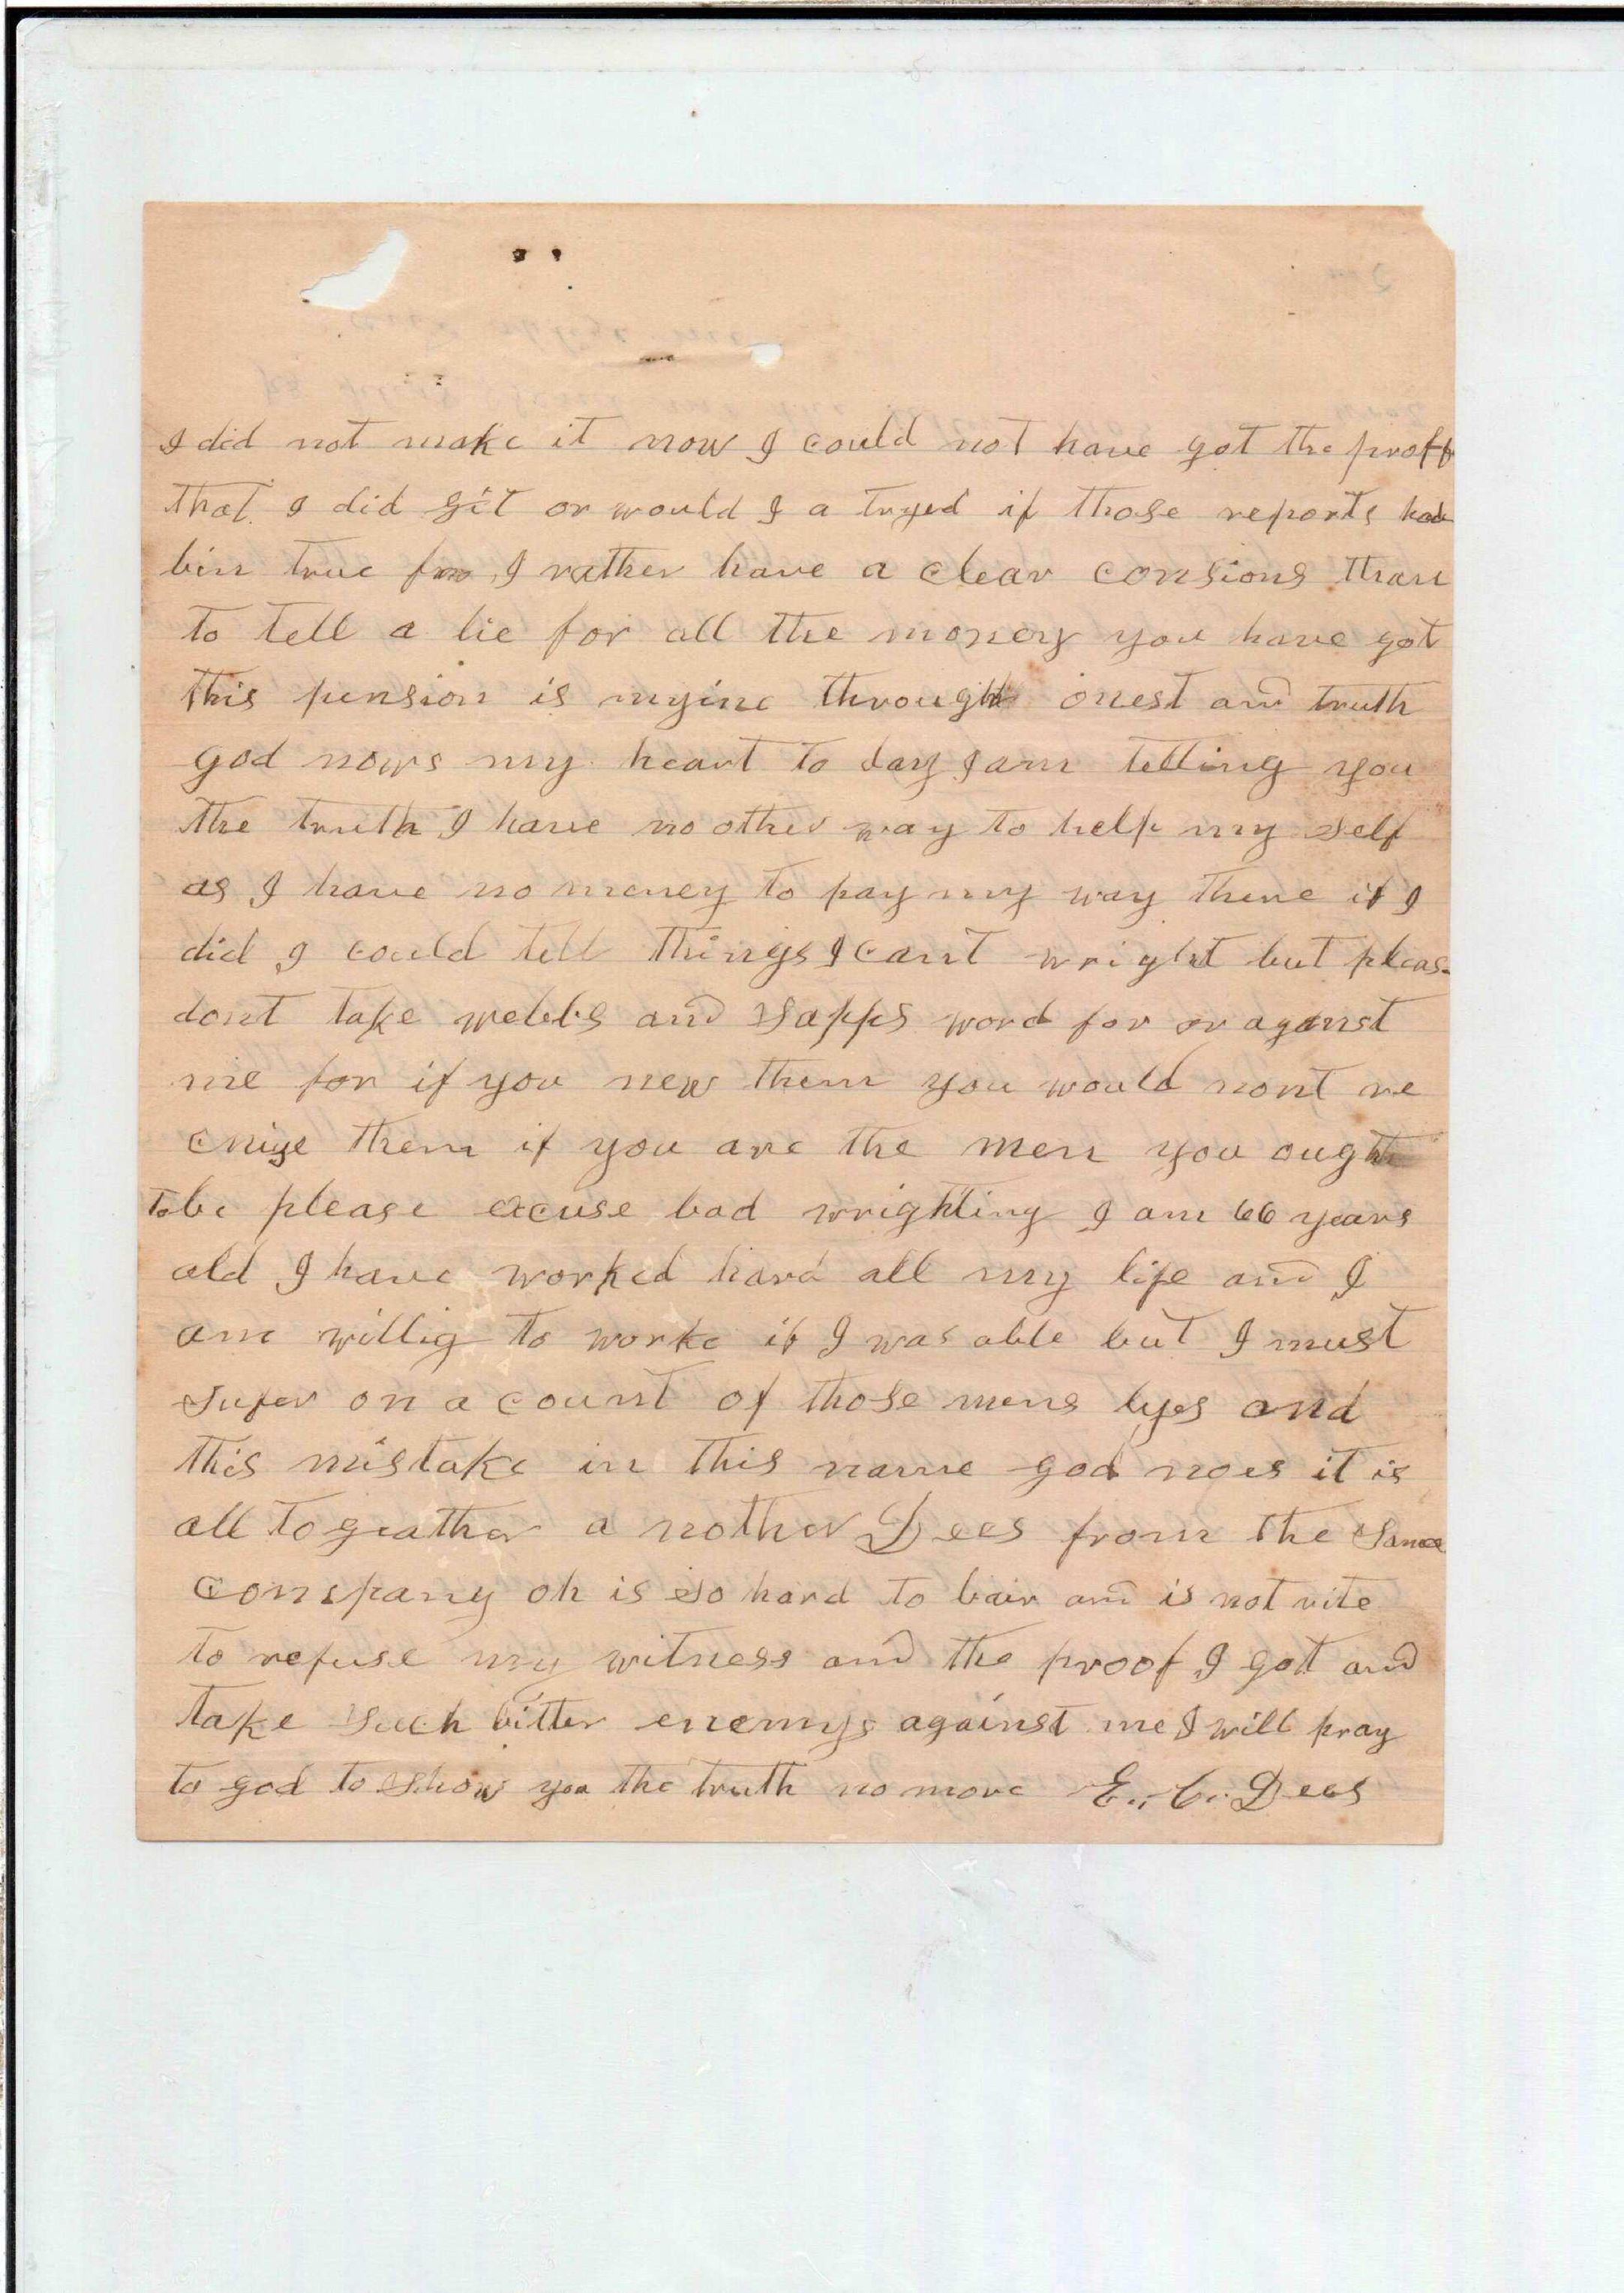 I did not make it now I could not have got the proff
that I did git or would I a tryed if those reports had
bin true for I rather have a clear consions than
to tell a lie for all the money you have got
this pension is myine through onest and truth
god nows my heart to day I am telling you
the truth I have no other way to help my self
as I have no money to pay my way there if I
did I could tell things I cant wright but pleas
dont take webbs and Sapps word for or aganst
me for if you new them you would nont re
cnize them if you are the men you ought
to be please excuse bad wrighting I am 66 years
old I have worked hard all my life and I
am willig to worke if I was able but I must
sufer on a count of those mens lyes and
this mistake in this name god noes it is
all to geather a nother Dees from the Same
company oh is so hard to bair and is not rite
to refuse my witness and the proof I got and
take such bitter enemys against me I will pray
to god to show you the truth no more E. C. Dees